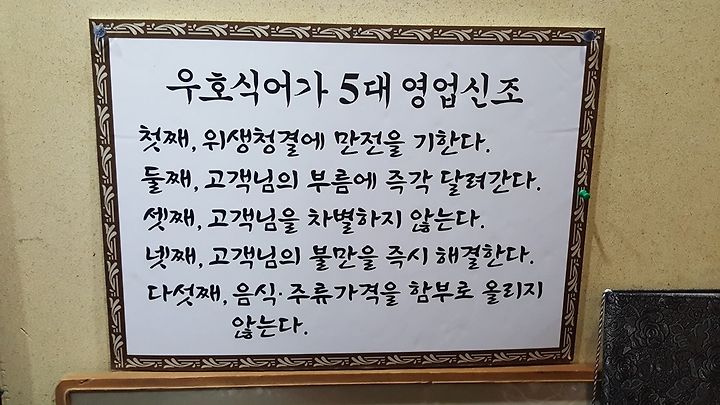 우호식어가 5대 영업신조
첫째, 위생청결에 만전을 기한다.
둘째, 고객님의 부름에 즉각 달려간다.
셋째, 고객님을 차별하지 않는다.
넷째, 고객님의 불만을 즉시 해결한다.
다섯째, 음식·주류가격을 함부로 올리지
않는다.